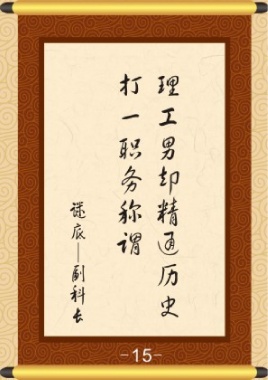 理工男却精通历史
打一职务称谓
谜底——副科长
-15-